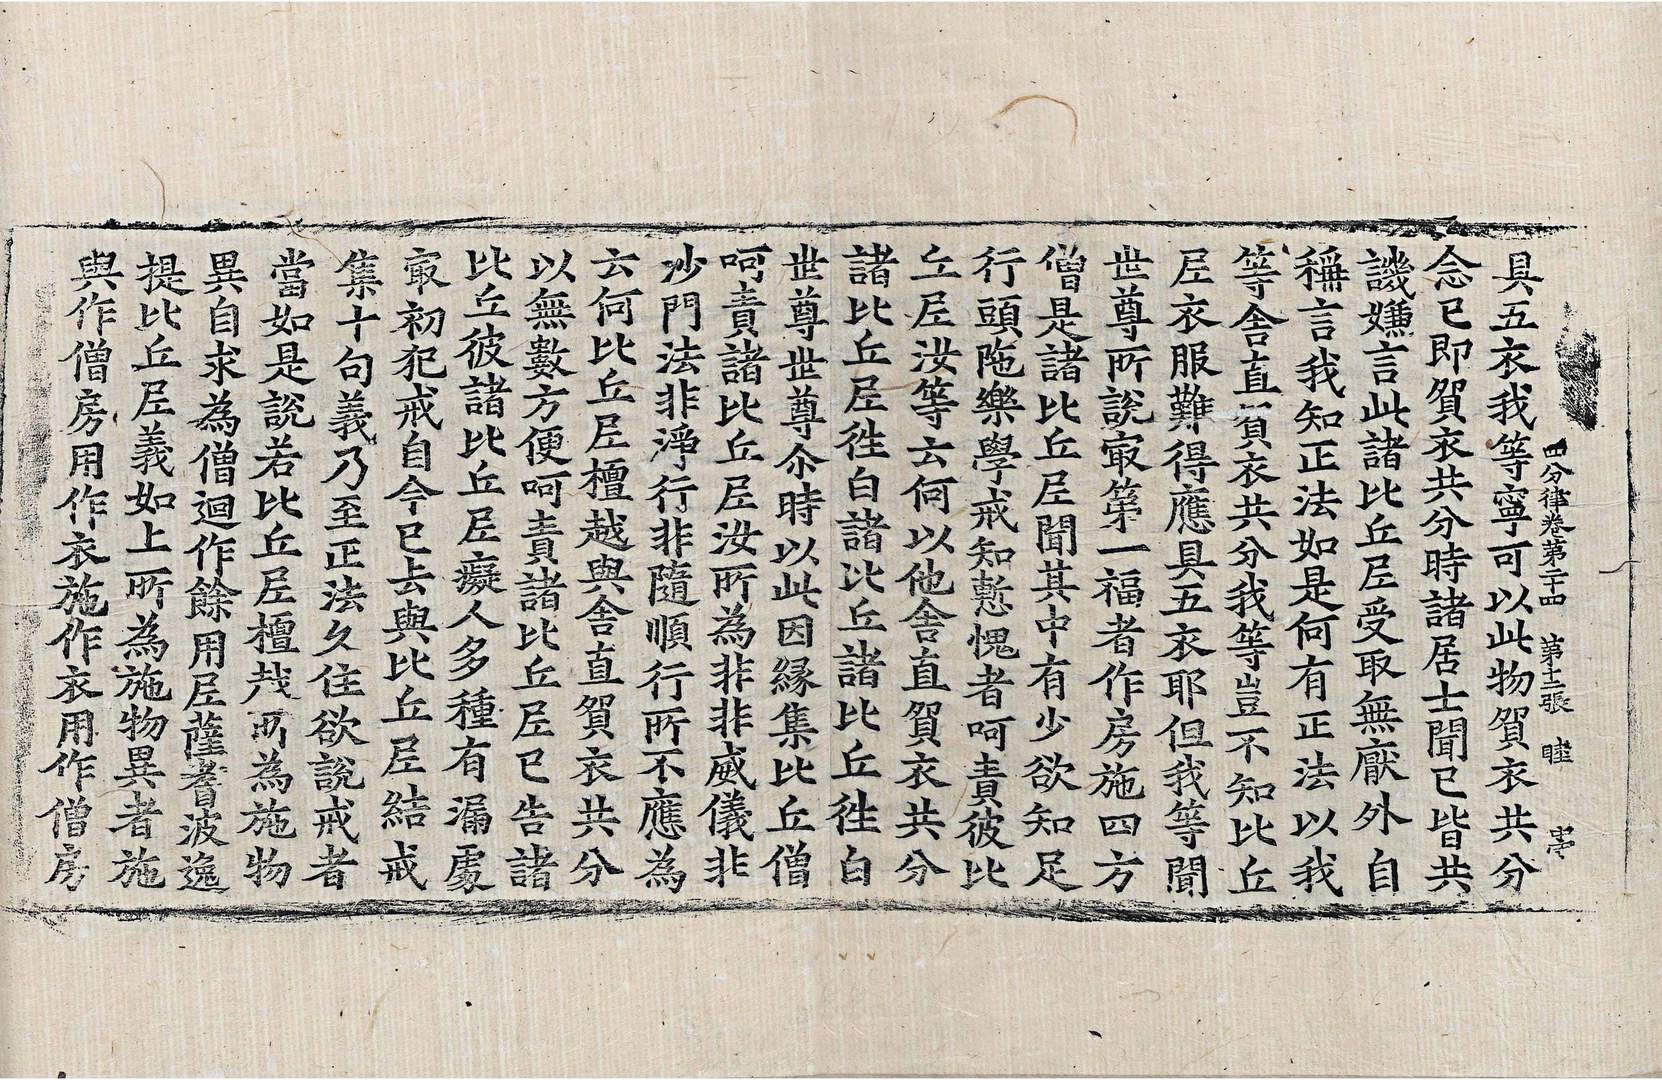 四分律卷第二十四 第十二張 睦
具五衣我等寧可以此物貿衣共分
念已即貿衣共分時諸居士聞已皆共
譏嫌言此諸比丘尼受取無厭外自
稱言我知正法如是何有正法以我
等舍直貿衣共分我等豈不知比丘
尼衣服難得應具五衣耶但我等聞
世尊所說㝡第一福者作房施四方
僧是諸比丘尼聞其中有少欲知足
行頭陁樂學戒知慙愧者呵責彼比
丘尼汝等云何以他舍直貿衣共分
諸比丘尼徃白諸比丘諸比丘徃白
世尊世尊尒時以此因緣集比丘僧
呵責諸比丘尼汝所為非非威儀非
沙門法非淨行非隨順行所不應為
云何比丘尼檀越與舍直貿衣共分
以無數方便呵責諸比丘尼已告諸
比丘彼諸比丘尼癡人多種有漏處
㝡初犯戒自今已去與比丘尼結戒
集十句義乃至正法久住欲說戒者
當如是說若比丘尼檀越所為施物
異自求為僧迴作餘用尼薩耆波逸
提比丘尼義如上所為施物異者施
與作僧房用作衣施作衣用作僧房